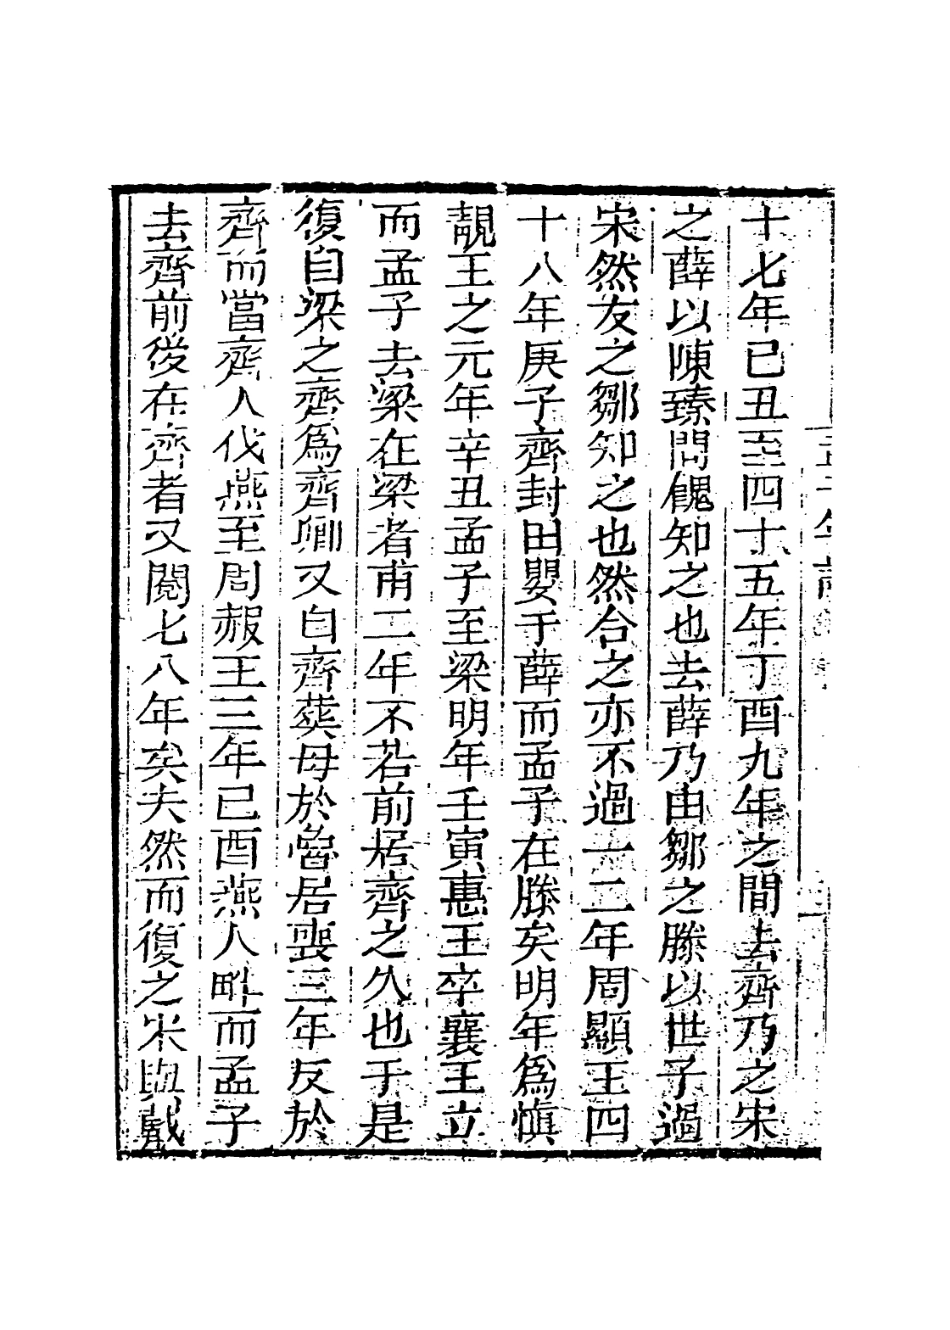 十七年已丑至四十五年丁酉九年之間去齊乃之宋
之薛以陳臻問餽知之也去薛乃由鄒之滕以世子過
宋然友之鄒知之也然合之亦不過一二年周顯王四
十八年庚子齊封田嬰于薛而孟子在滕矣明年爲愼
靚王之元年辛丑孟子至梁明年壬寅惠王卒襄王立
而孟子去梁在梁者甫二年不若前居齊之久也于是
復自梁之齊爲齊卿又自齊葬母於魯居喪三年反於
齊而當齊人伐燕至周赧王三年已酉燕人畔而孟子
去齊前後在齊者又閱七八年矣夫然而復之宋與戴